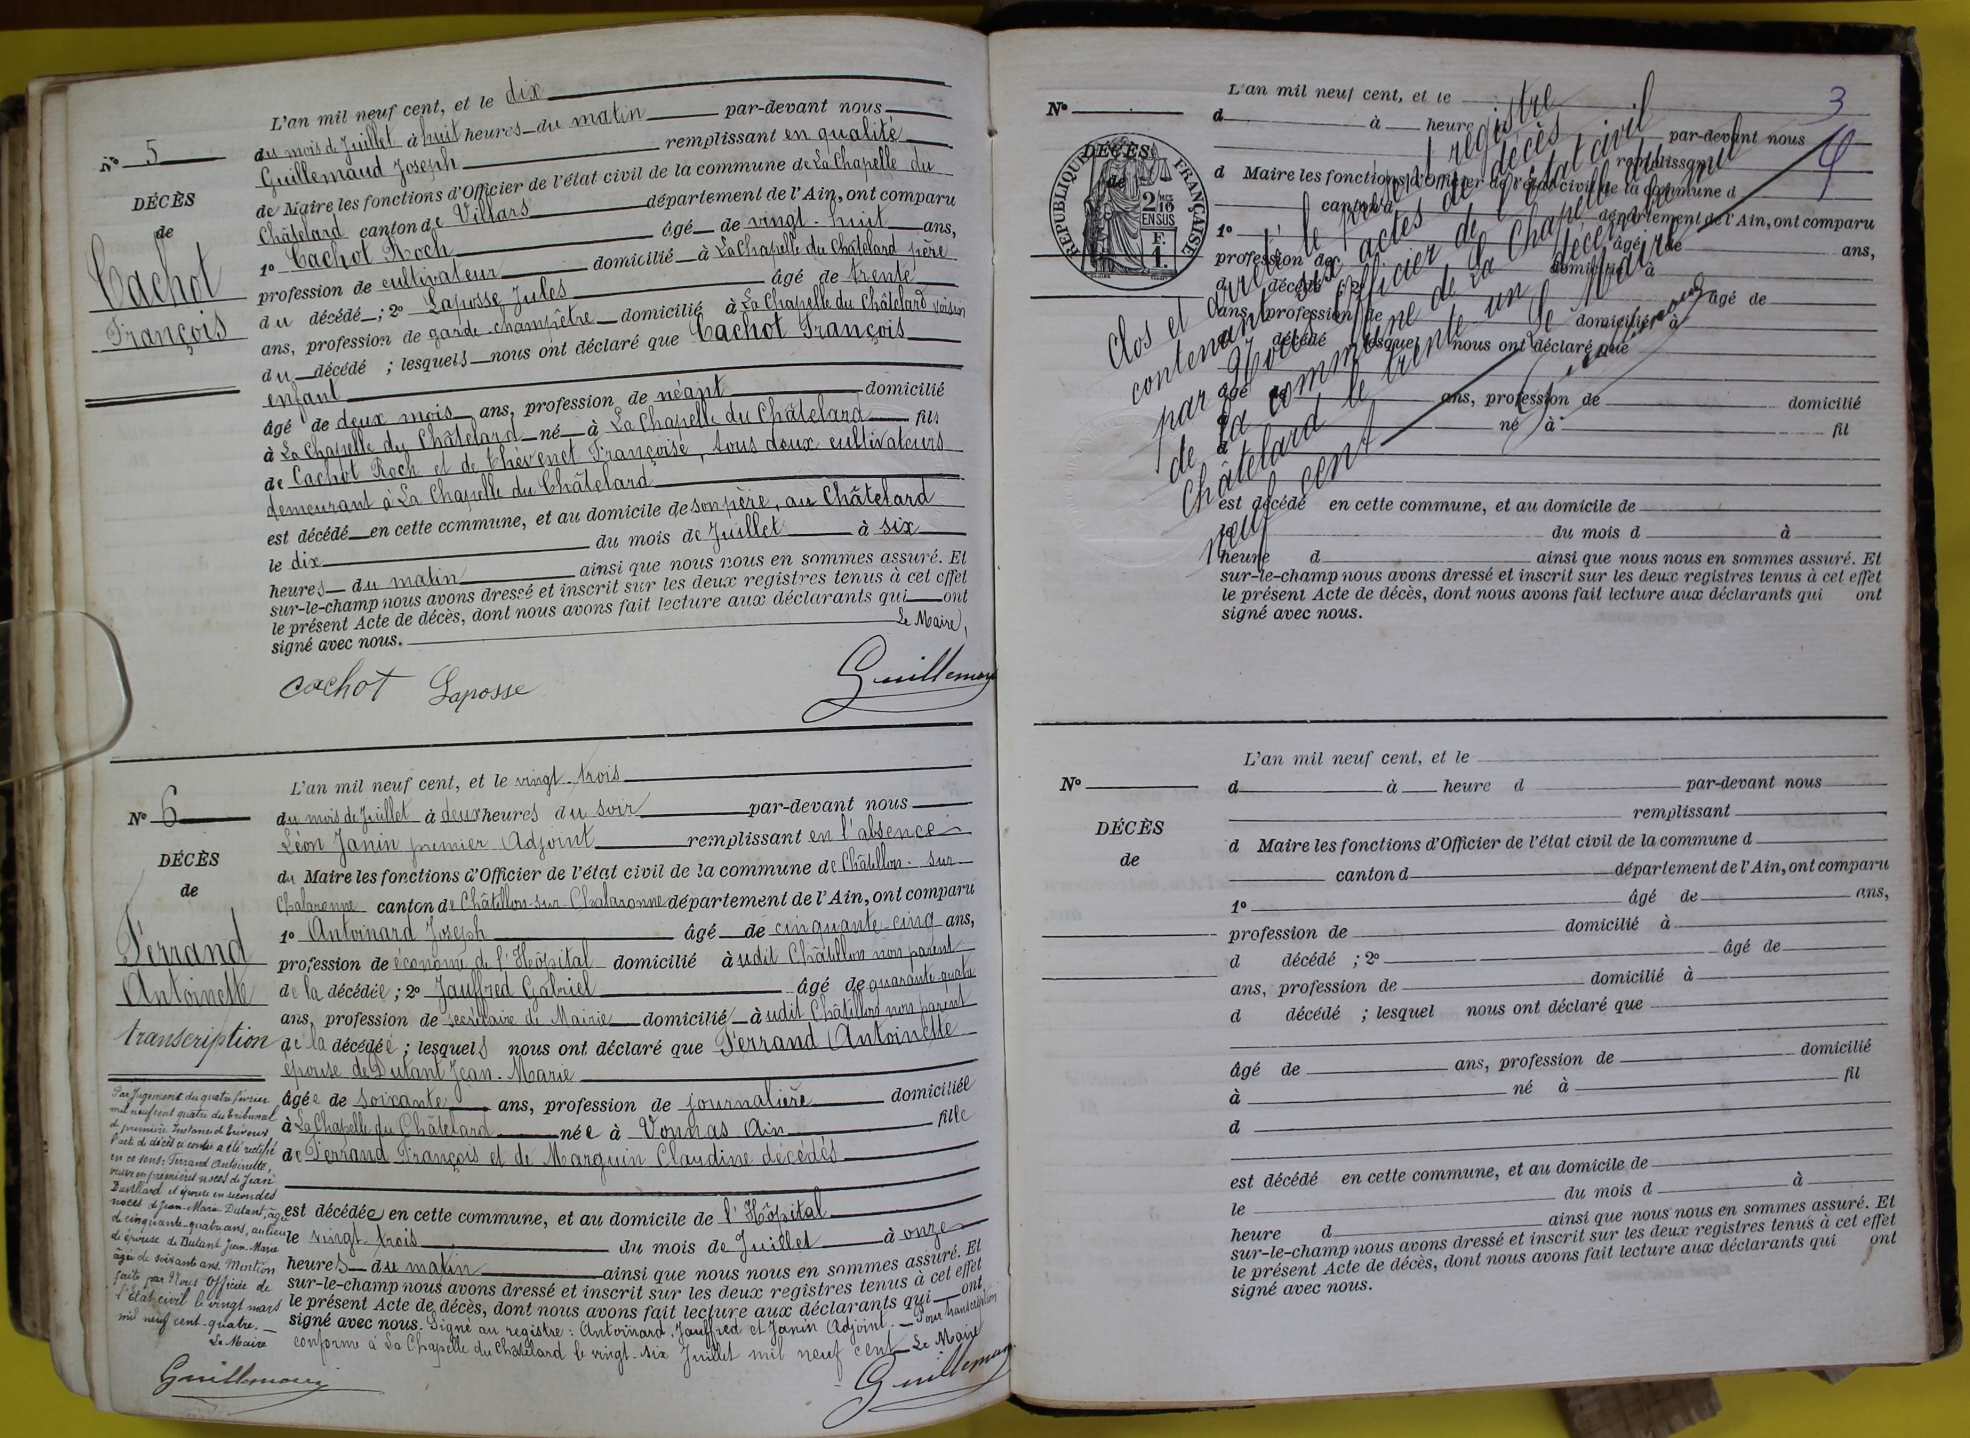 L'an mil neuf cent, et le dix
du mois de Juillet à huit heures du matin par-devant nous
Guillemaud Joseph remplissant en qualité
de Maire les fonctions d'Officier de l'état civil de la commune de La Chapelle du
Châtelard canton de Villars département de l'Ain, ont comparu
1° Cachot Roch âgé de vingt-huit ans,
profession de cultivateur domicilié à La Chapelle du Châtelard père
du décédé ; 2° Laposse Jules âgé de trente
ans, profession de garde champêtre domicilié à La Chapelle du Châtelard voisin
du décédé ; lesquels nous ont déclaré que Cachot François
enfant
âgé de deux mois ans, profession de néant domicilié
à La Chapelle du Châtelard né à La Chapelle du Châtelard fils
de Cachot Roch et de Thévenet Françoise, tous deux cultivateurs
demeurant à La Chapelle du Châtelard
est décédé en cette commune, et au domicile de son père, au Châtelard
le dix du mois de Juillet à six
heures du matin ainsi que nous nous en sommes assuré. Et
sur-le-champ nous avons dressé et inscrit sur les deux registres tenus à cet effet
le présent Acte de décès, dont nous avons fait lecture aux déclarants qui ont
signé avec nous. Le Maire,
N° 5
DÉCÈS
de
Cachot
François
cachot Laposse Guillemaud
L'an mil neuf cent, et le vingt-trois
du mois de Juillet à deux heures du soir par-devant nous
Léon Janin premier Adjoint remplissant en l'absence
du Maire les fonctions d'Officier de l'état civil de la commune de Châtillon-sur-
Chalaronne canton de Châtillon-sur-Chalaronne département de l'Ain, ont comparu
1° Antoinard Joseph âgé de cinquante-cinq ans,
profession de économe de l'Hôpital domicilié à udit Châtillon non parent
de la décédée ; 2° Jauffred Gabriel âgé de quarante-quatre
ans, profession de secrétaire de Mairie domicilié à udit Châtillon non parent
de la décédée ; lesquels nous ont déclaré que Ferrand Antoinette
épouse de Dutant Jean-Marie
âgée de soixante ans, profession de journalière domiciliée
à La Chapelle du Châtelard née à Vonnas Ain fille
de Ferrand François et de Marguin Claudine décédés
est décédée en cette commune, et au domicile de l'Hôpital
le vingt-trois du mois de Juillet à onze
heures du matin ainsi que nous nous en sommes assuré. Et
sur-le-champ nous avons dressé et inscrit sur les deux registres tenus à cet effet
le présent Acte de décès, dont nous avons fait lecture aux déclarants qui ont
signé avec nous. Signé au registre : Antoinard, Jauffred et Janin Adjoint. — Pour transcription
conforme à La Chapelle du Châtelard le vingt-six Juillet mil neuf cent Le Maire
Guillemaud
N° 6
DÉCÈS
de
Ferrand
Antoinette
transcription
Par Jugement du quatre février
mil neuf cent quatre du tribunal
de première Instance de Trévoux
l'acte de décès ci contre a été rectifié
en ce sens : Ferrand Antoinette,
veuve en premières noces de Jean
et épouse en secondes
noces de Jean-Marie Dutant, âgée
de cinquante-quatre ans, au lieu
de épouse de Dutant Jean-Marie
âgée de soixante ans. Mention
faite par Nous Officier de
l'État civil le vingt mars
mil neuf cent-quatre. —
Le Maire
Guillemaud
3
4
L'an mil neuf cent, et le
N°
d à heure par-devant nous
remplissant
d Maire les fonctions d'Officier de l'état civil de la commune d
canton d département de l'Ain, ont comparu
1° âgé de ans,
profession de domicilié à
d décédé ; 2° âgé de
ans, profession de domicilié à
d décédé ; lesquel nous ont déclaré que
âgé de ans, profession de domicilié
à né à fil
d
est décédé en cette commune, et au domicile de
le du mois d à
heure d ainsi que nous nous en sommes assuré. Et
sur-le-champ nous avons dressé et inscrit sur les deux registres tenus à cet effet
le présent Acte de décès, dont nous avons fait lecture aux déclarants qui ont
signé avec nous.
DÉCÈS
de
RÉPUBLIQUE FRANÇAISE
2/10
EN SUS
F.
1.
Clos et arrêté le présent registre
contenant six actes de décès
par Nous Officier de l'état civil
de la commune de La Chapelle du
Châtelard le trente un décembre mil
neuf cent
Le Maire
L'an mil neuf cent, et le
N°
d à heure d par-devant nous
remplissant
DÉCÈS
de
d Maire les fonctions d'Officier de l'état civil de la commune d
canton d département de l'Ain, ont comparu
1° âgé de ans,
profession de domicilié à
d décédé ; 2° âgé de
ans, profession de domicilié à
d décédé ; lesquel nous ont déclaré que
âgé de ans, profession de domicilié
à né à fil
d
est décédé en cette commune, et au domicile de
le du mois d à
heure d ainsi que nous nous en sommes assuré. Et
sur-le-champ nous avons dressé et inscrit sur les deux registres tenus à cet effet
le présent Acte de décès, dont nous avons fait lecture aux déclarants qui ont
signé avec nous.